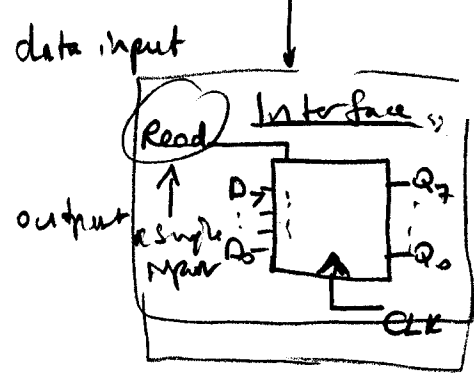 data input
Interface
Read
D7
Q7
output
a single
input
D0
Q0
CLK